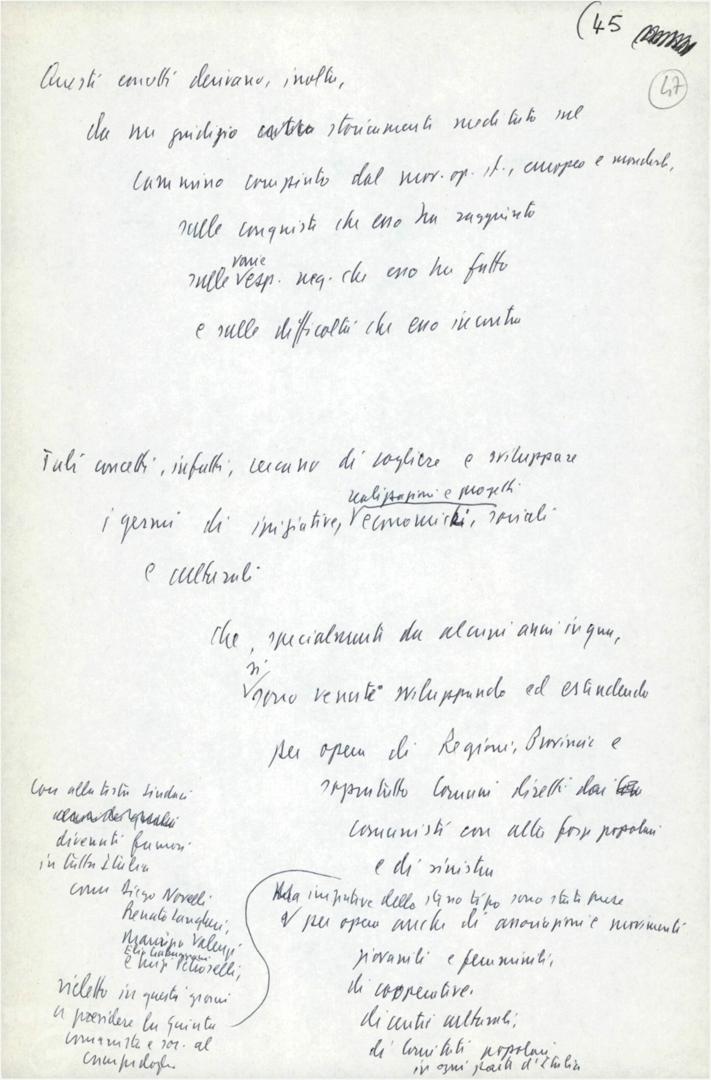 (45
47
Questi concetti derivano, inoltre,
da un giudizio storicamente meditato sul
cammino compiuto dal mov. op. it., europeo e mondiale,
sulle conquiste che esso ha raggiunto
varie
sulle esp. neg. che esso ha fatto
e sulle difficoltà che esso incontra
Tali concetti, infatti, cercano di cogliere e sviluppare
realizzazioni e progetti
i germi di iniziative, economici, sociali
e culturali
che, specialmente da alcuni anni in qua,
si
sono venute sviluppando ed estendendo
per opera di Regioni, Provincie e
soprattutto Comuni diretti dai
comunisti con altre forze popolari
e di sinistra
Ma iniziative dello stesso tipo sono state prese
per opera anche di associazioni e movimenti
giovanili e femminili,
di cooperative,
di centri culturali,
di Comitati popolari
in ogni parte d'Italia
con alla testa Sindaci
divenuti famosi
in tutta Italia
come Diego Novelli
Renato Zangheri,
Maurizio Valenzi,
Elio Gabbuggiani
e Luigi Petroselli,
rieletto in questi giorni
a presiedere la Giunta
comunista e soc. al
Campidoglio